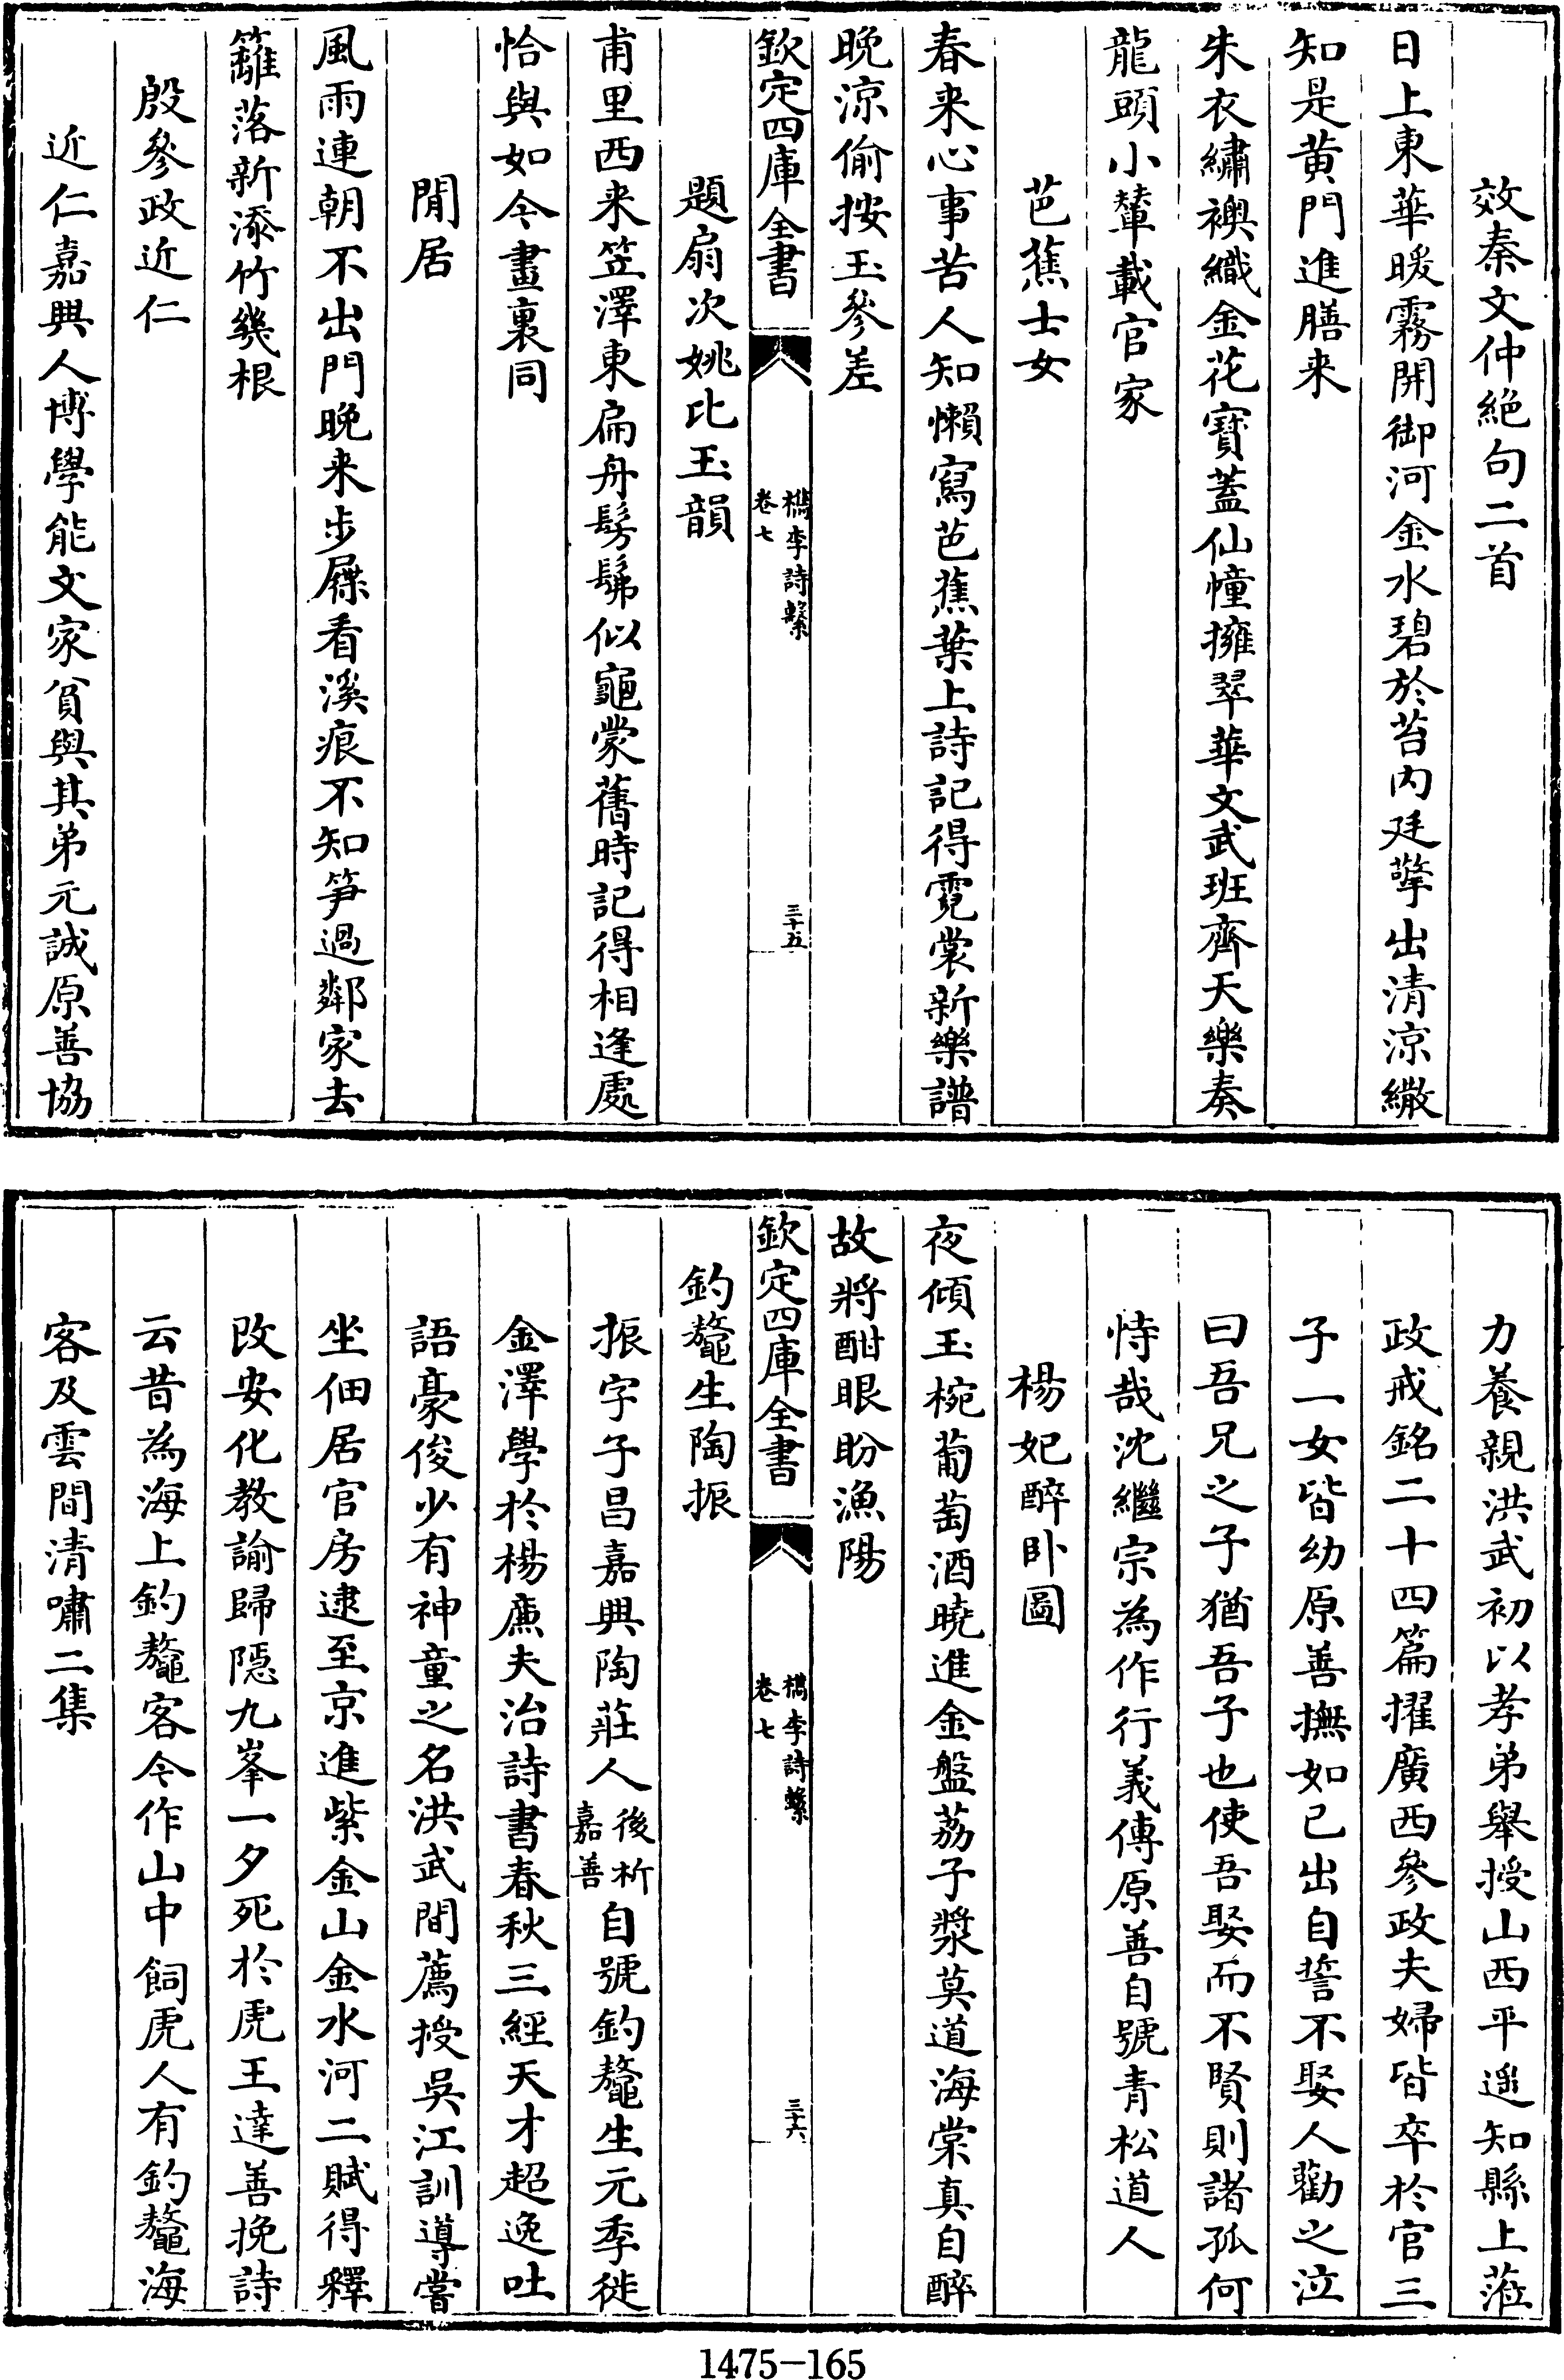 效秦文仲絶句二首
日上東華暖霧開御河金水碧於苔内廷擎出清涼繖
知是黄門進膳来
朱衣繡襖織金花寳葢仙幢擁翠華文武班齊天樂奏
龍頭小輦載官家
芭蕉士女
春来心事苦人知懶寫芭蕉葉上詩記得霓裳新樂譜
晚涼偷按玉參差
欽定四庫全書
檇李詩繫
卷七
三十五
題扇次姚比玉韻
甫里西来笠澤東扁舟髣髴似龜蒙舊時記得相逢處
恰與如今畫裏同
閒居
風雨連朝不出門晚来步屧看溪痕不知笋過鄰家去
籬落新添竹幾根
殷參政近仁
近仁嘉興人博學能文家貧與其弟元誠原善協
力養親洪武初以孝弟舉授山西平遥知縣上蒞
政戒銘二十四篇擢廣西參政夫婦皆卒於官三
子一女皆幼原善撫如已出自誓不娶人勸之泣
曰吾兄之子猶吾子也使吾娶而不賢則諸孤何
恃哉沈繼宗為作行義傳原善自號青松道人
楊妃醉卧圖
夜傾玉椀葡萄酒曉進金盤荔子漿莫道海棠真自醉
故將酣眼盼漁陽
欽定四庫全書
檇李詩繫
卷七
三十六
釣鼇生陶振
振字子昌嘉興陶莊人後析嘉善自號釣鼇生元季徙
金澤學於楊廉夫治詩書春秋三經天才超逸吐
語豪俊少有神童之名洪武間薦授吳江訓導嘗
坐佃居官房逮至京進紫金山金水河二賦得釋
改安化教諭歸隠九峯一夕死於虎王達善挽詩
云昔為海上釣鼇客今作山中飼虎人有釣鼇海
客及雲間清嘯二集
1475-165